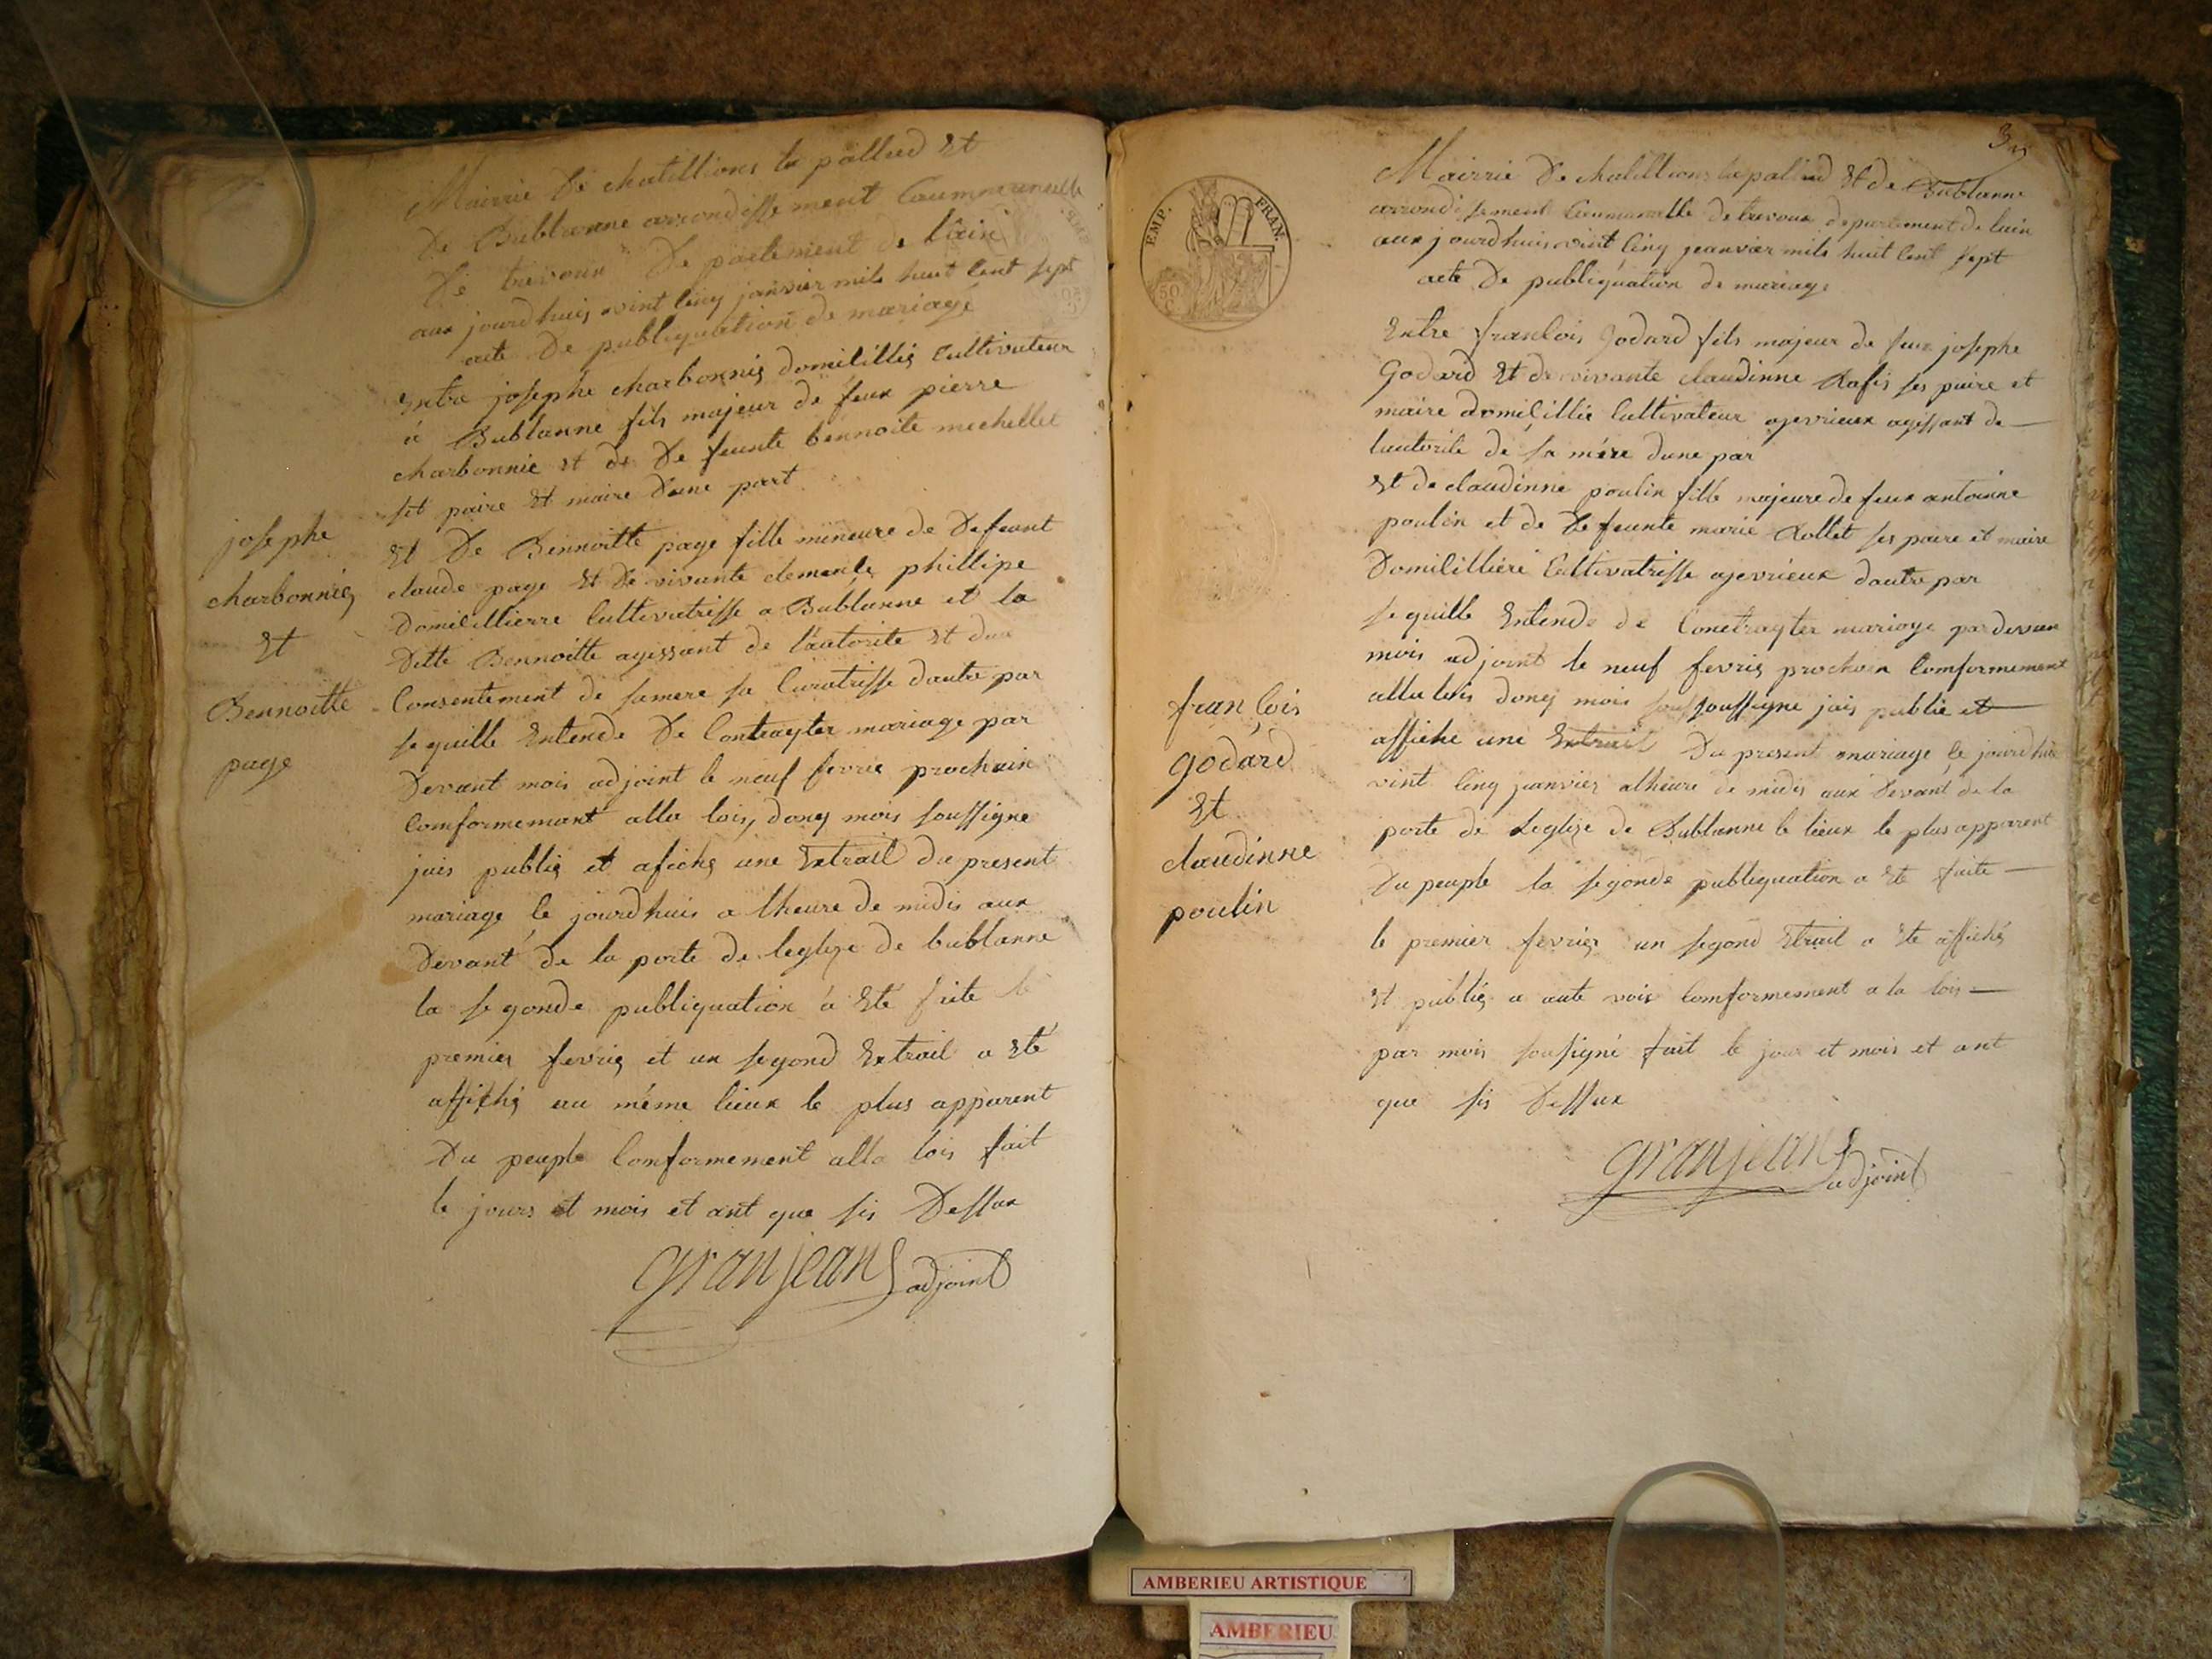 Mairrie de chatillions la pallud Et
de Bublanne arrondissement Caummunalle
de trevoux departement de lain
aux jourdhuis vint cinq janvier mils huit cent sept
acte De publiquation de mariage
Entre josephe charbonnié domicillié cultivateur
á Bublanne fils majeur de feux pierre
charbonnie et de De feunte bennoite mechellet
set paire Et maire dune part
josephe
charbonnié
Et
Bennoitte
page
Et De Bennoitte page fille mineure de Defeunt
claude page Et de vivante clemente phillipe
domicillierre cultivatrisse a Bublanne et la
ditte Bennoitte agissant de l'autorite Et dux
Consentement de samere sa Curatrisse dautre par
se quille Entende De Contrayter mariage par
Devant mois adjoint le neuf fevrie prochain
Comformemant alla lois, donq mois soussigne
jais publié et afiché une Extrait du present
mariage le jourdhuis a lheure de midis aux
Devant de la porte de leglize de bublanne
la segonde publiquation á Eté faite le
premier fevrié et un segond Extrait a Eté
affiché au méme lieux le plus apparent
Du peuple Comformement alla lois fait
le jours et mois et ant que sis Dessux
granjean adjoint
EMP. FRAN.
50
C
3
Mairrie De chatillions la pallud Et de Bublanne
arrondissement Caumunalle de trevoux departement de lain
aux jourdhuis vint cinq jeanvier mils huit cent sept
acte De publiquation de mariage
Entre francois Godard fils majeur de feux josephe
Godard Et de vivante claudinne Rafis ses paire et
maire domicillié Cultivateur ajevrieux agissant de
lautorite de sa mére dune par
Et de claudinne poulin fille majeure de feux antoinne
poulin et de De feunte marie Rollet ses paire et maire
Domicilliére Cultivatrisse ajevrieux dautre par
se quille Entende de Conetrayter mariage par devan
mois adjoint le neuf fevrié prochain Comformement
alla lois donq mois soussigne jais publié et
affiche une Extrait Du present mariage le jourdhui
vint cinq janvier alheure de midis aux Devant de la
porte de Leglize de Bublanne le lieux le plus apparent
Du peuple la segonde publiquation a Eté faite
le premier fevrier un segond Etrait a Ete affiché
Et publié a aute voix Comformement a la lois
par mois sousigné fait le jour et mois et ant
que sis Dessux
francois
godard
Et
claudinne
poulin
granjean adjoint
AMBERIEU ARTISTIQUE
AMBERIEU